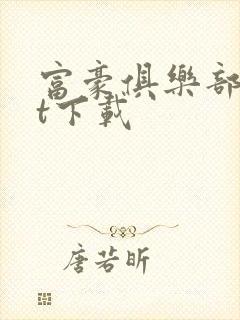 富豪俱樂部
t下載
唐若昕